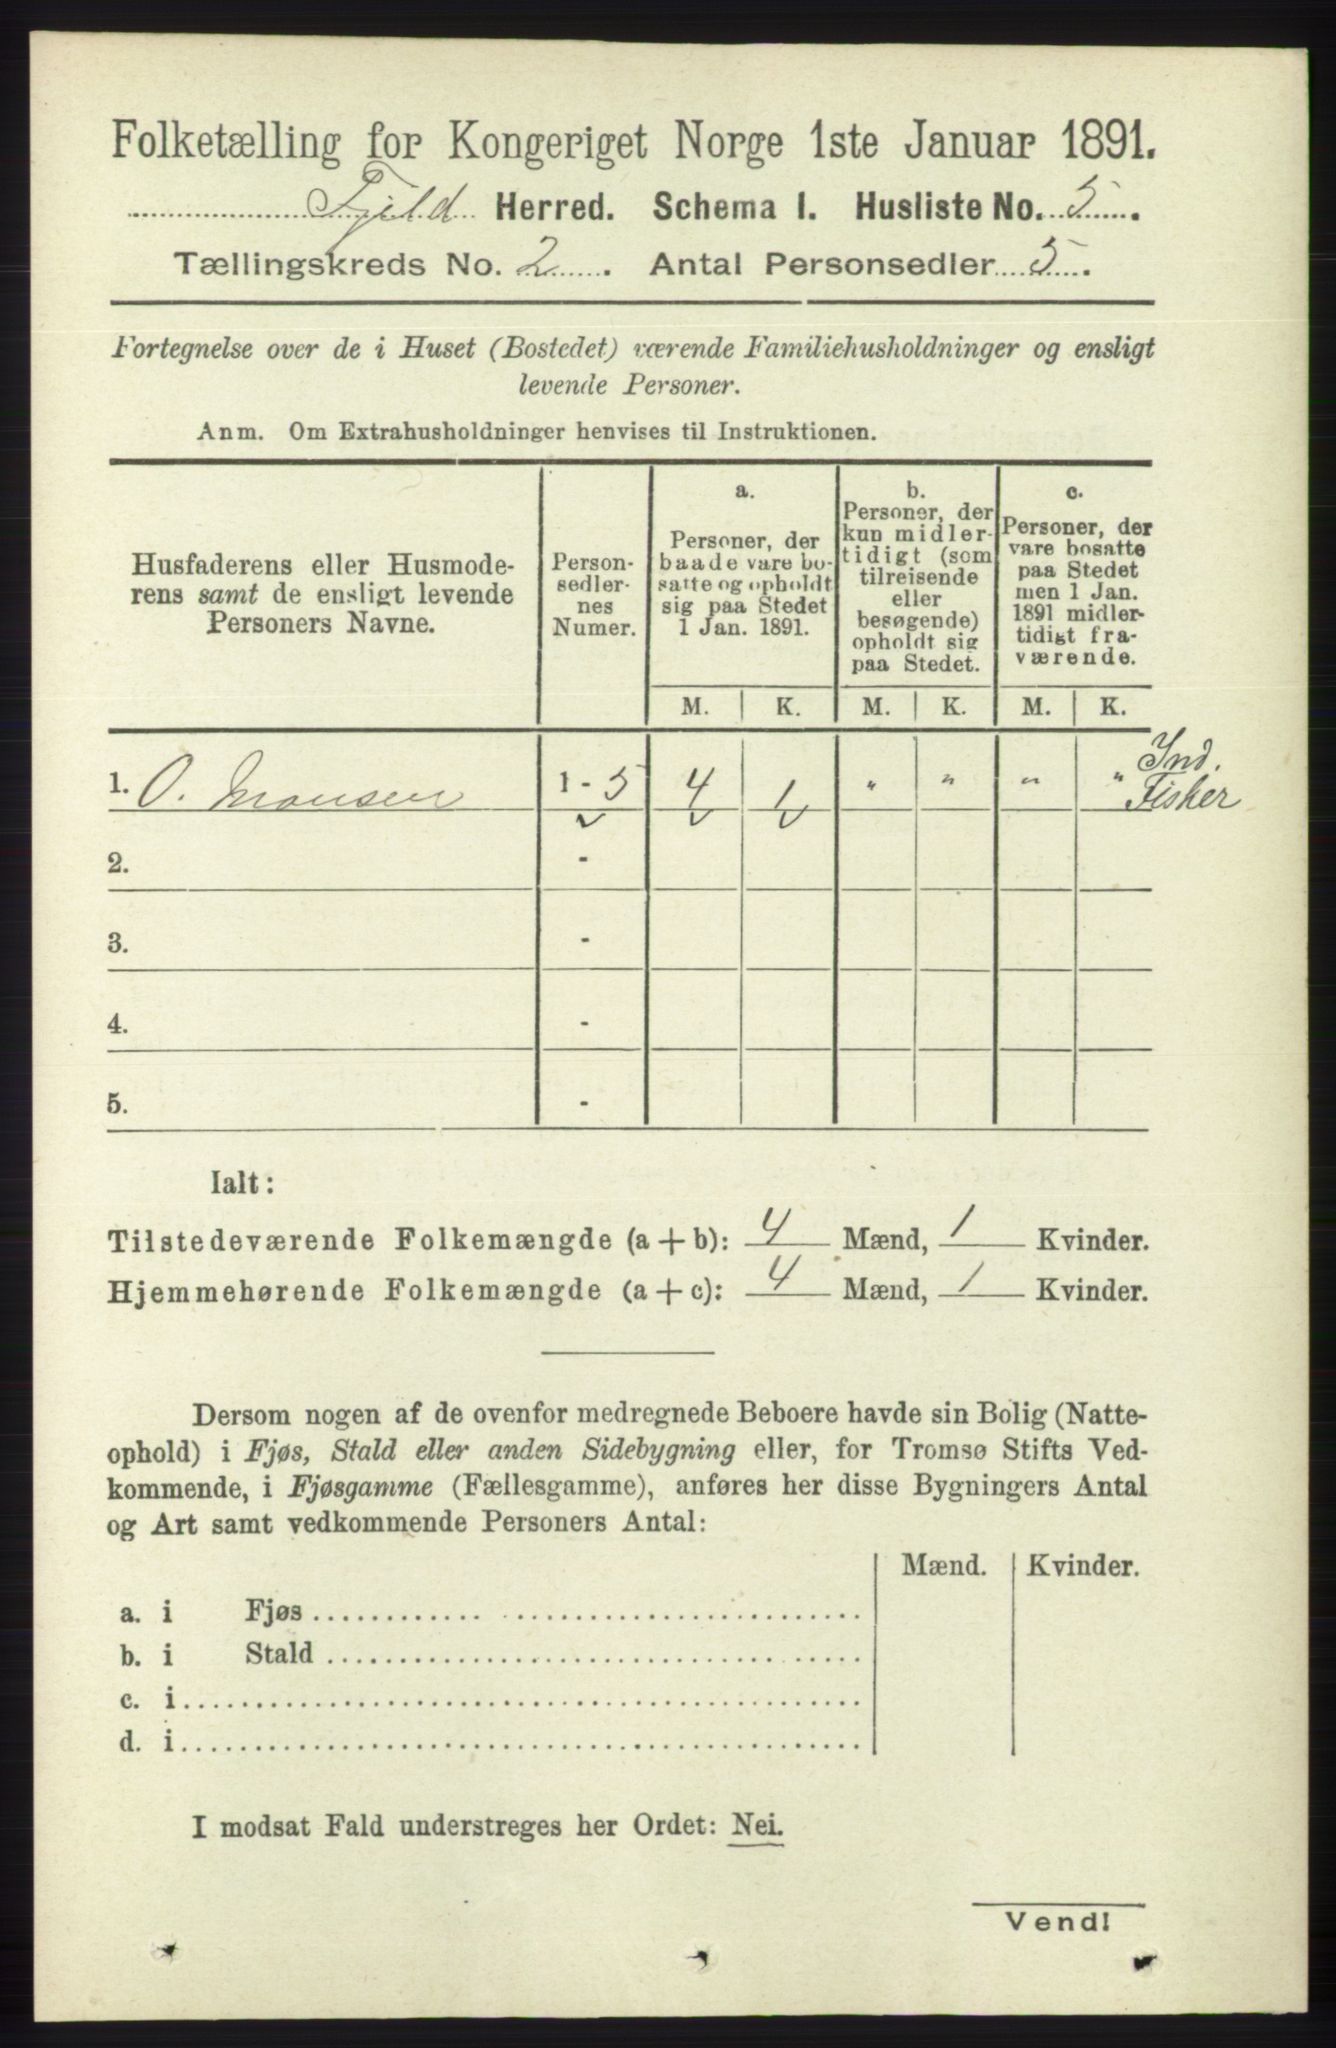 Folketælling for Kongeriget Norge 1ste Januar 1891.
Fjeld Herred. Schema I. Husliste No. 5.
Tællingskreds No. 2. Antal Personsedler 5.
Fortegnelse over de i Huset (Bostedet) værende Familiehusholdninger og ensligt
levende Personer.
Anm. Om Extrahusholdninger henvises til Instruktionen.
Husfaderens eller Husmode-
rens samt de ensligt levende
Personers Navne.
Person-
sedler-
nes
Numer.
a.
Personer, der
baade vare bo-
satte og opholdt
sig paa Stedet
1 Jan. 1891.
b.
Personer, der
kun midler-
tidigt (som
tilreisende
eller
besøgende)
opholdt sig
paa Stedet.
c.
Personer, der
vare bosatte
paa Stedet
men 1 Jan.
1891 midler-
tidigt fra-
værende.
M. K. M. K. M. K.
1. O. Monsen 1 - 5 4 1 " " " " Ind.
Fisker
2. -
3. -
4. -
5. -
Ialt:
Tilstedeværende Folkemængde (a + b): 4 Mænd, 1 Kvinder.
Hjemmehørende Folkemængde (a + c): 4 Mænd, 1 Kvinder.
Dersom nogen af de ovenfor medregnede Beboere havde sin Bolig (Natte-
ophold) i Fjøs, Stald eller anden Sidebygning eller, for Tromsø Stifts Ved-
kommende, i Fjøsgamme (Fællesgamme), anføres her disse Bygningers Antal
og Art samt vedkommende Personers Antal:
Mænd. Kvinder.
a. i Fjøs
b. i Stald
c. i
d. i
I modsat Fald understreges her Ordet: Nei.
Vend!